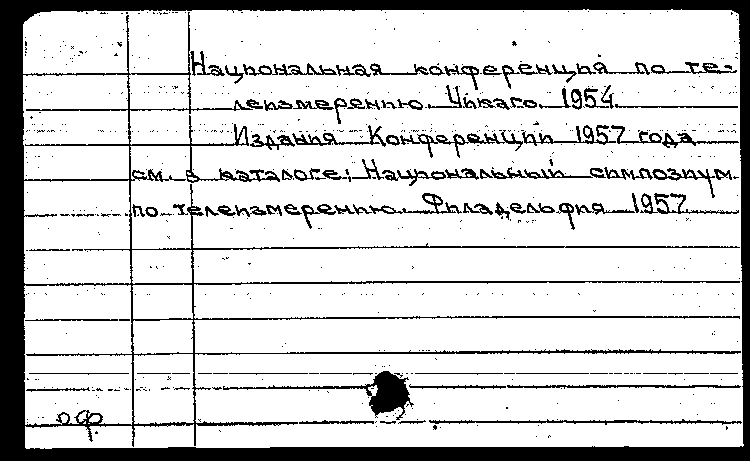 Национальная конференция по те-
леизмерению. Чикаго. 1954.
Издания Конференции 1957 года
см. в каталоге: Национальный симпозиум
по телеизмерению. Филадельфия 1957
оф